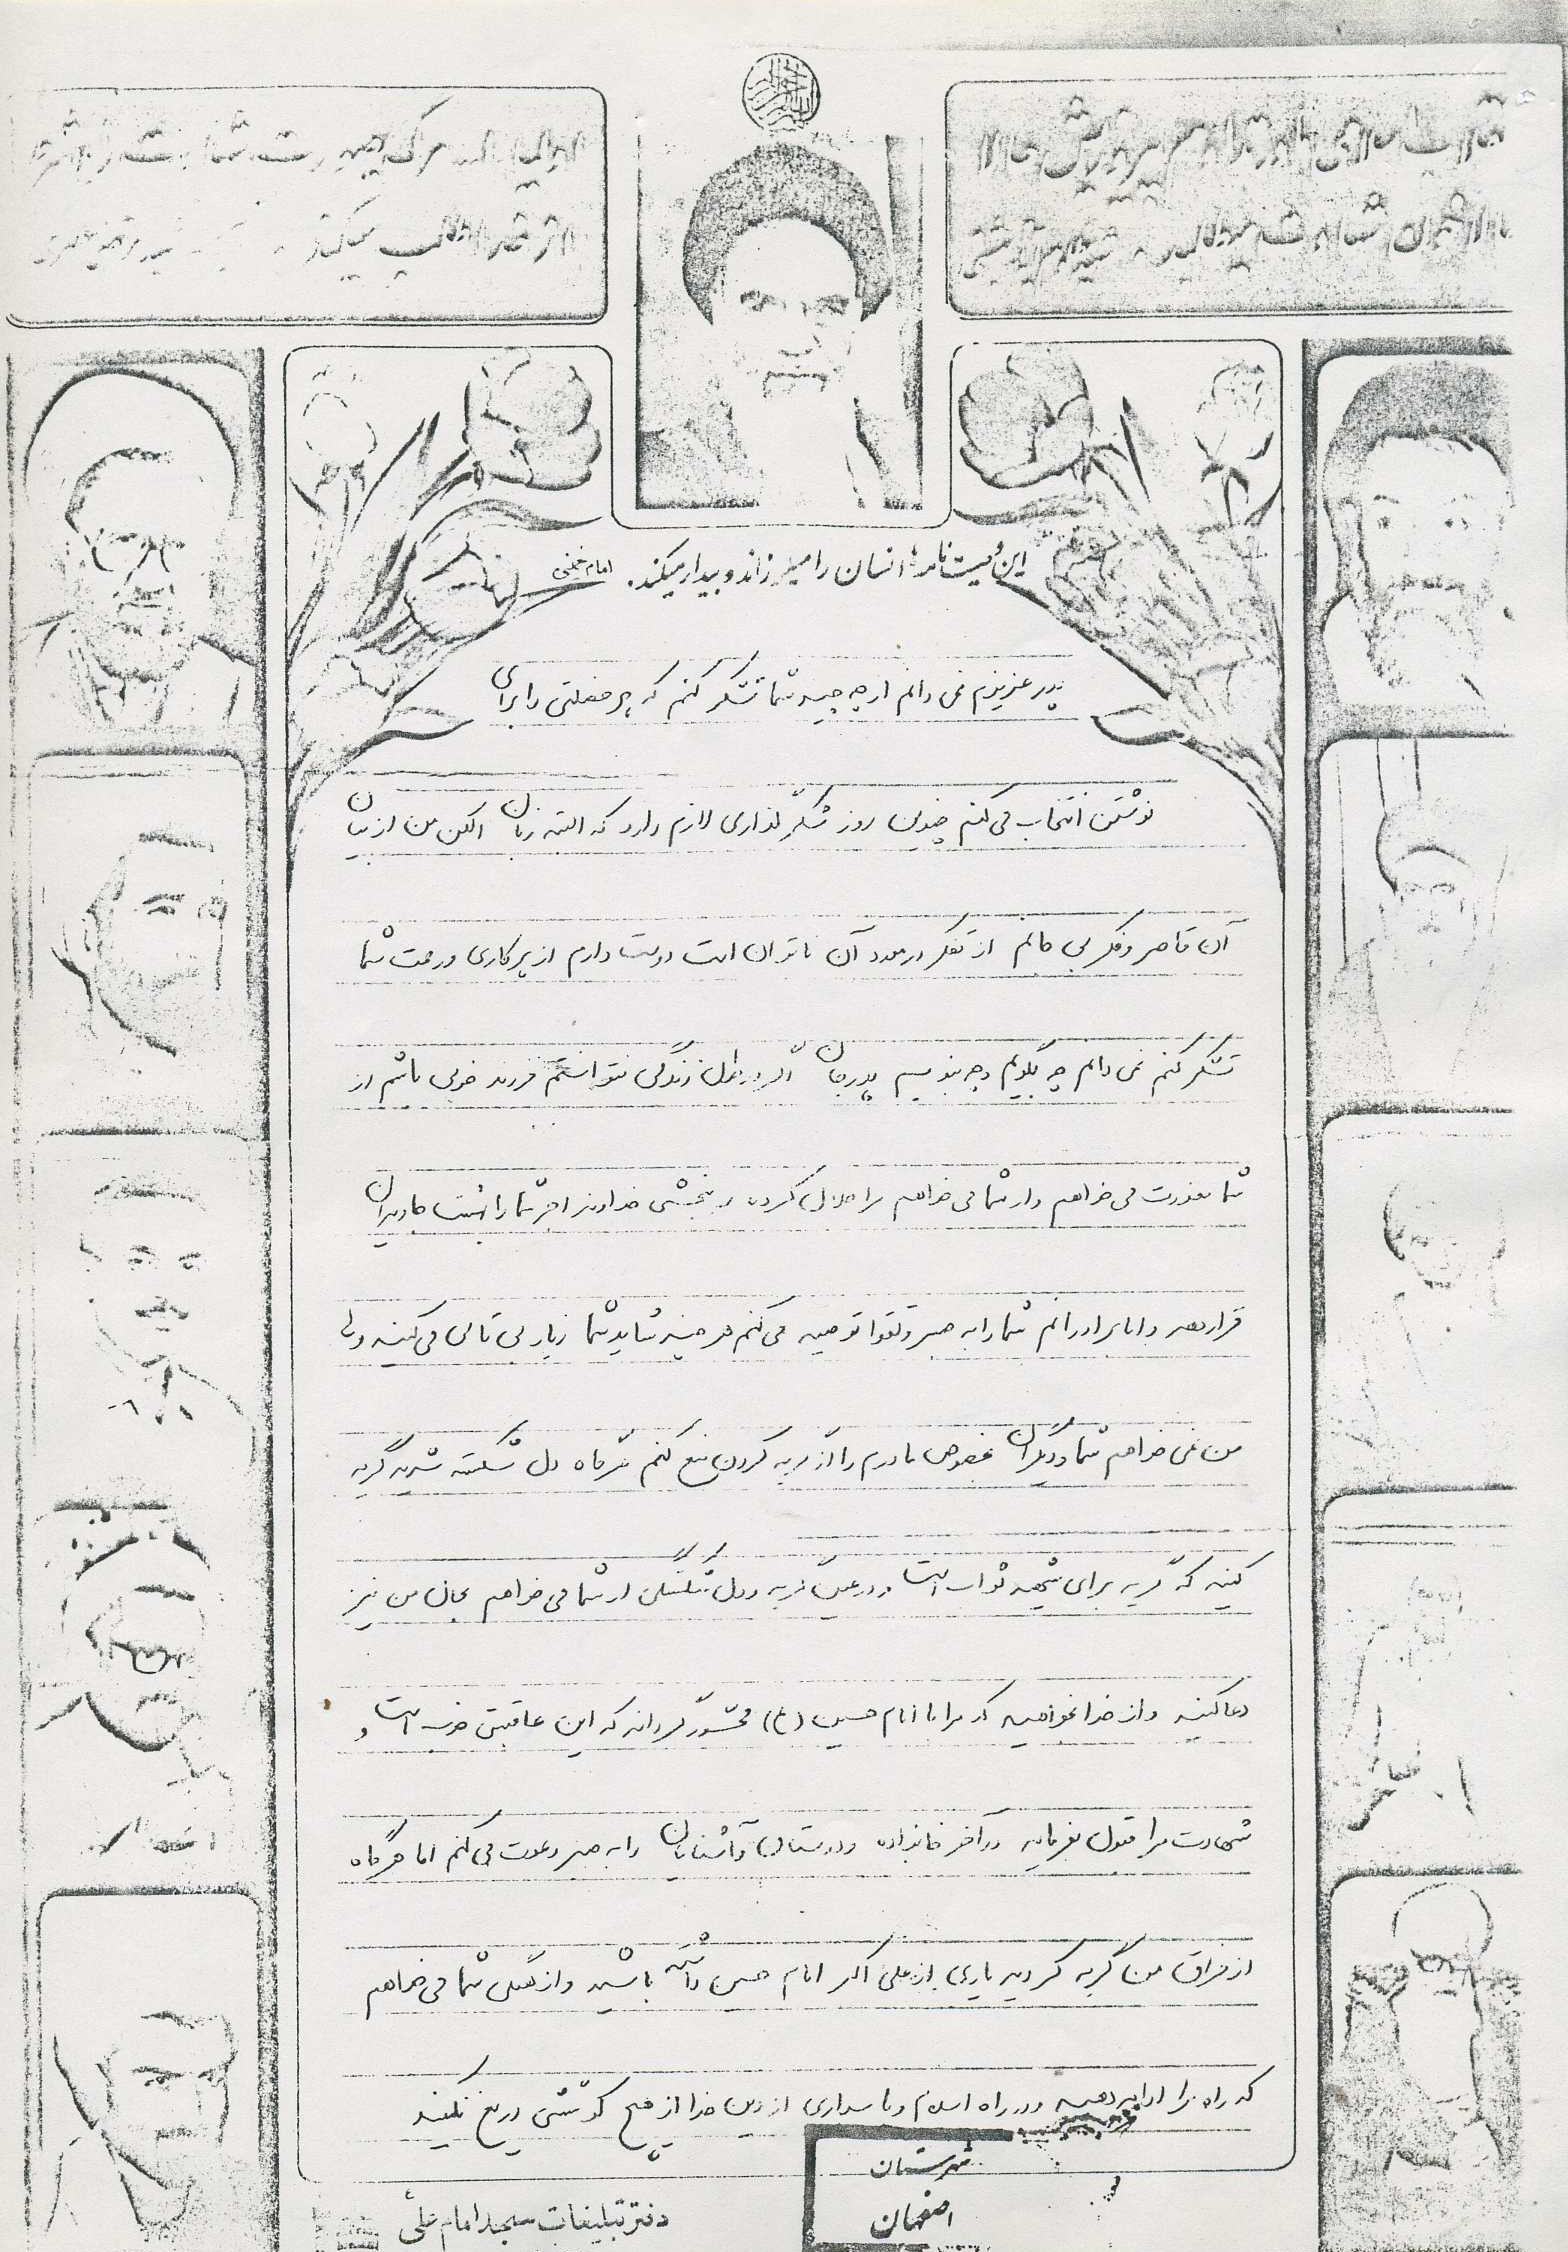 این وصیت نامه‌ها انسان را میلرزاند و بیدار میکند. امام خمینی
پدر عزیزم نمی دانم از چه چیز شما تشکر کنم که هر خصلتی را برای
نوشتن انتخاب می کنم چندین روز شکرگذاری لازم دارد که البته زبان الکن من از بیان
آن قاصر و فکر بی جانم از تفکر در مورد آن ناتوان است دوست دارم از پرکاری و زحمت شما
تشکر کنم نمی دانم چه بگویم و چه بنویسم پدر جان اگر در طول زندگی نتوانستم فرزند خوبی باشم از
شما معذرت می خواهم و از شما می خواهم مرا حلال کرده و ببخشی خداوند اجر شما را بهشت جاویدان
قرار دهد و اما برادرانم شما را به صبر و تقوا توصیه می کنم هر چند شاید شما زیاد بی تابی می کنید ولی
من نمی خواهم شما و دیگران بخصوص مادرم را از گریه کردن منع کنم هرگاه دل شکسته شدید گریه
کنید که گریه برای شهید ثواب است و در عین گریه و دل شکستگی از شما می خواهم بجان من نیز
دعا کنید و از خدا بخواهید که مرا با امام حسین (ع) محشور گرداند که این عاقبتی خوب است و
شهادت مرا قبول بفرماید در آخر خانواده و دوستان و آشنایان را به صبر دعوت می کنم اما هرگاه
از فراق من گریه کردید یادی از علی اکبر امام حسین داشته باشید و از همگی شما می خواهم
که راه مرا ادامه دهید و در راه اسلام و پاسداری از دین خدا از هیچ کوششی دریغ نکنید
شهرستان
اصفهان
دفتر تبلیغات مسجد امام علی